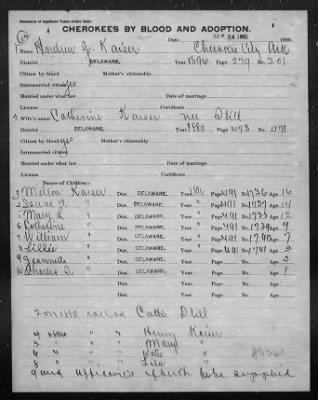 CHEROKEES BY BLOOD AND ADOPTION.
Date SEP 24 1900 1900.
1 Andrew J. Kaiser Cherokee City Ark
District DELAWARE. Year 1896 Page 579 No. 201
Citizen by blood Mother's citizenship
Intermarried citizen yes
Married under what law Date of marriage
License Certificate
2 Wife's name Catherine Kaiser nee Still
District DELAWARE. Year 1880 Page 473 No. 1171
Citizen by blood yes Mother's citizenship
Intermarried citizen
Married under what law Date of marriage
License Certificate
Names of Children:
3 Milton Kaiser Dist. DELAWARE. Year 1896 Page 491 No. 1736 Age 16
4 Isaac H. " Dist. DELAWARE. Year " Page 491 No. 1737 Age 14
5 Mary L " Dist. DELAWARE. Year " Page 491 No. 1738 Age 12
6 Catherine " Dist. DELAWARE. Year " Page 491 No. 1739 Age 9
7 William " Dist. DELAWARE. Year " Page 491 No. 1740 Age 7
8 Lillie " Dist. DELAWARE. Year " Page 491 No. 1741 Age 5
9 Jeannette " Dist. DELAWARE. Year Page No. Age 3
10 Charles " Dist. DELAWARE. Year Page No. Age 1
Dist. Year Page No. Age
2 on 1880 roll as Still
4 " 1896 " " Henry Kaiser
5 " " " Mary "
6 " " " Katie "
8 " " " Lila "